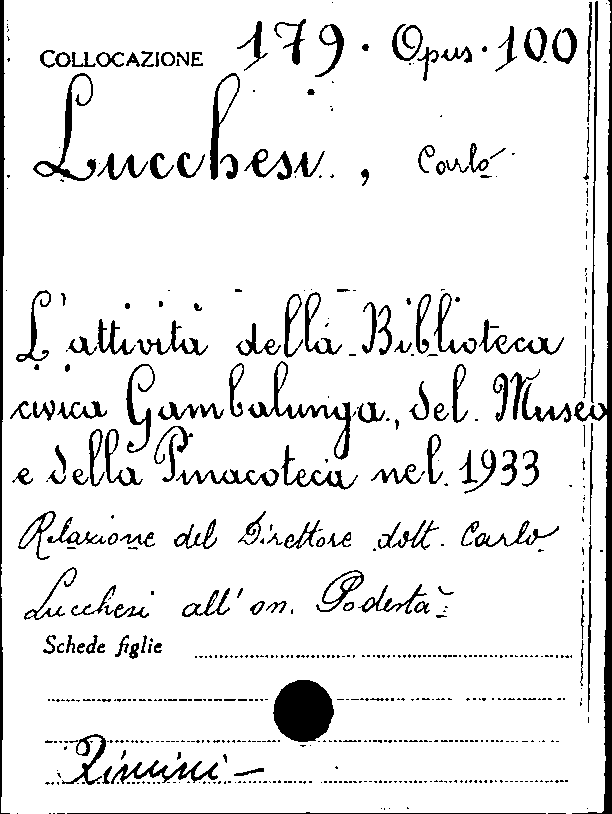 COLLOCAZIONE 179. Opus. 100
Lucchesi, Carlo
L'attività della Biblioteca
civica Gambalunga, del Museo
e della Pinacoteca nel 1933
Relazione del Direttore dott. Carlo
Lucchesi all'on. Podestà -
Schede figlie
Rimini -